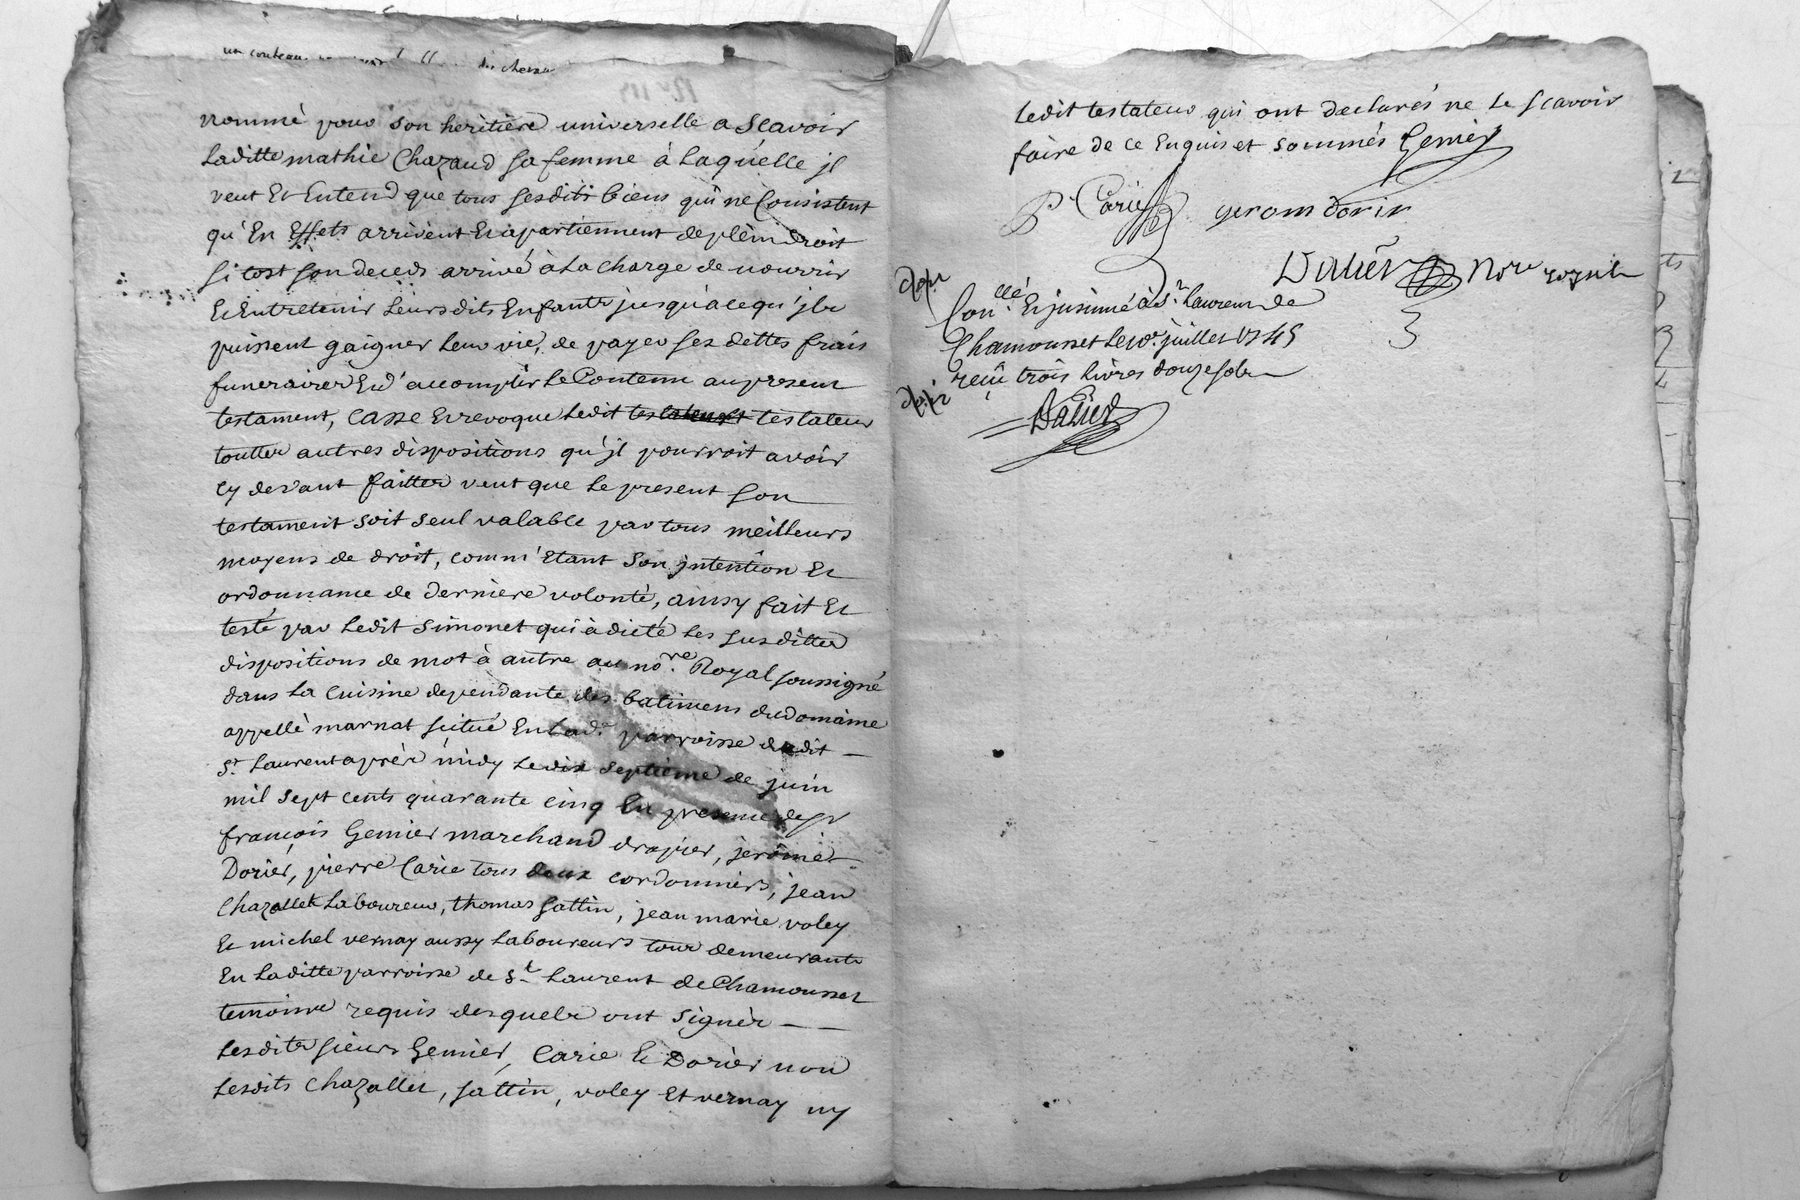 un couteau
nommé pour son heritiere universelle a scavoir
laditte mathie Chazaud sa femme à laquelle jl
veut Et Entend que tous sesdits biens qui ne Consistent
qu'En Effets arrivent Et apartiennent de plein droit
si tost son deceds arrivé à la charge de nourrir
Et Entretenir leursdits Enfants jusqu'a ce qu'jls
puissent gaigner leur vie, de payer ses dettes frais
funeraires Et d'accomplir le Contenu au present
testament, casse Et revoque ledit testateur
touttes autres dispositions qu'jl pourroit avoir
cy devant faittes veut que le present son
testament soit seul valable par tous meilleurs
moyens de droit, comm'Etant son jntention Et
ordonnance de derniere volonté, ainsy fait Et
testé par ledit simonet qui à dicté les susdittes
dispositions de mot à autre au no.re Royal soussigné
dans la cuisine dependante des batimens du domaine
appellé marnat scitué En lad.e parroisse dudit
S.t laurent aprés midy le dix septieme de juin
mil sept cents quarante cinq En presence de sr
francois Gemier marchand drapier, jerôme
Dorier, pierre Carie tous deux cordonniers, jean
Chazallet laboureur, thomas sattin, jean marie voley
Et michel vernay aussy laboureurs tous demeurants
En laditte parroisse de S.t laurent de Chamousset
temoins requis desquels ont signér
lesdits sieurs Gemier, Carie Et Dorier non
lesdits Chazallet, sattin, voley Et vernay ny
ledit testateur qui ont declarés ne le scavoir
faire de ce Enquis et sommés Gemier
P. Carie gerom dorier
Dalier No.re royal
Con.llé Et jnsinué à S.t laurent de
Chamousset le 10.e juillet 1745
reçu trois livres douze sols
Dalier